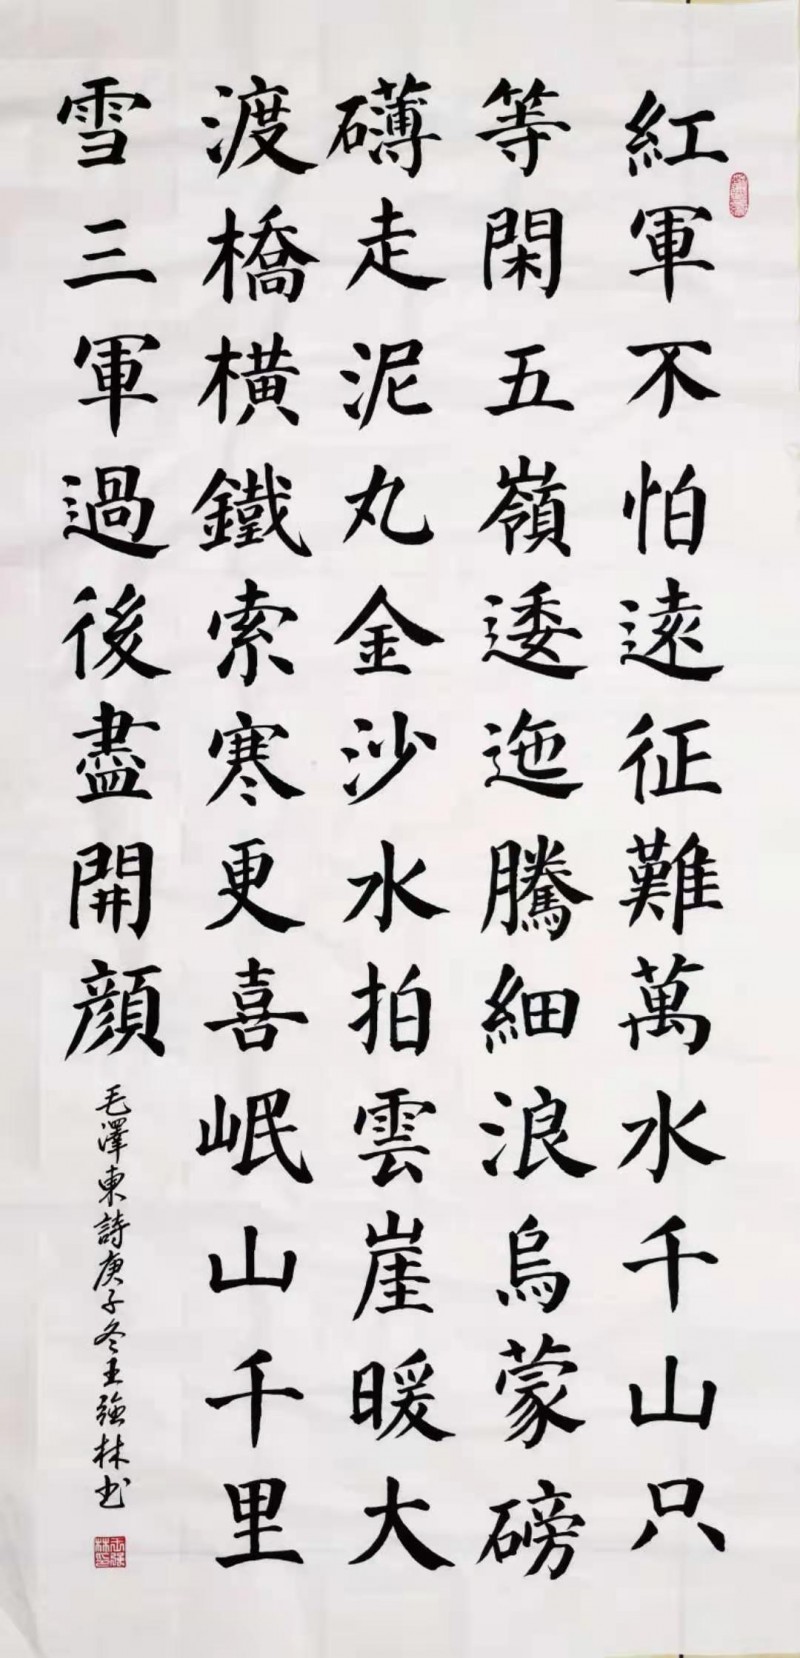 紅軍不怕遠征難萬水千山只
等閑五嶺逶迤騰細浪烏蒙磅
礴走泥丸金沙水拍雲崖暖大
渡橋橫鐵索寒更喜岷山千里
雪三軍過後盡開顔
毛澤東詩庚子冬王强林书